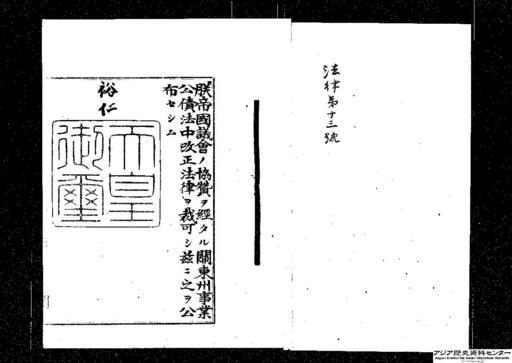 法律第十三號
朕帝國議會ノ協贊ヲ經タル關東州事業
公債法中改正法律ヲ裁可シ茲ニ之ヲ公
布セシム
裕仁
天皇
御璽
アジア歴史資料センター
Japan Center for Asian Historical Records